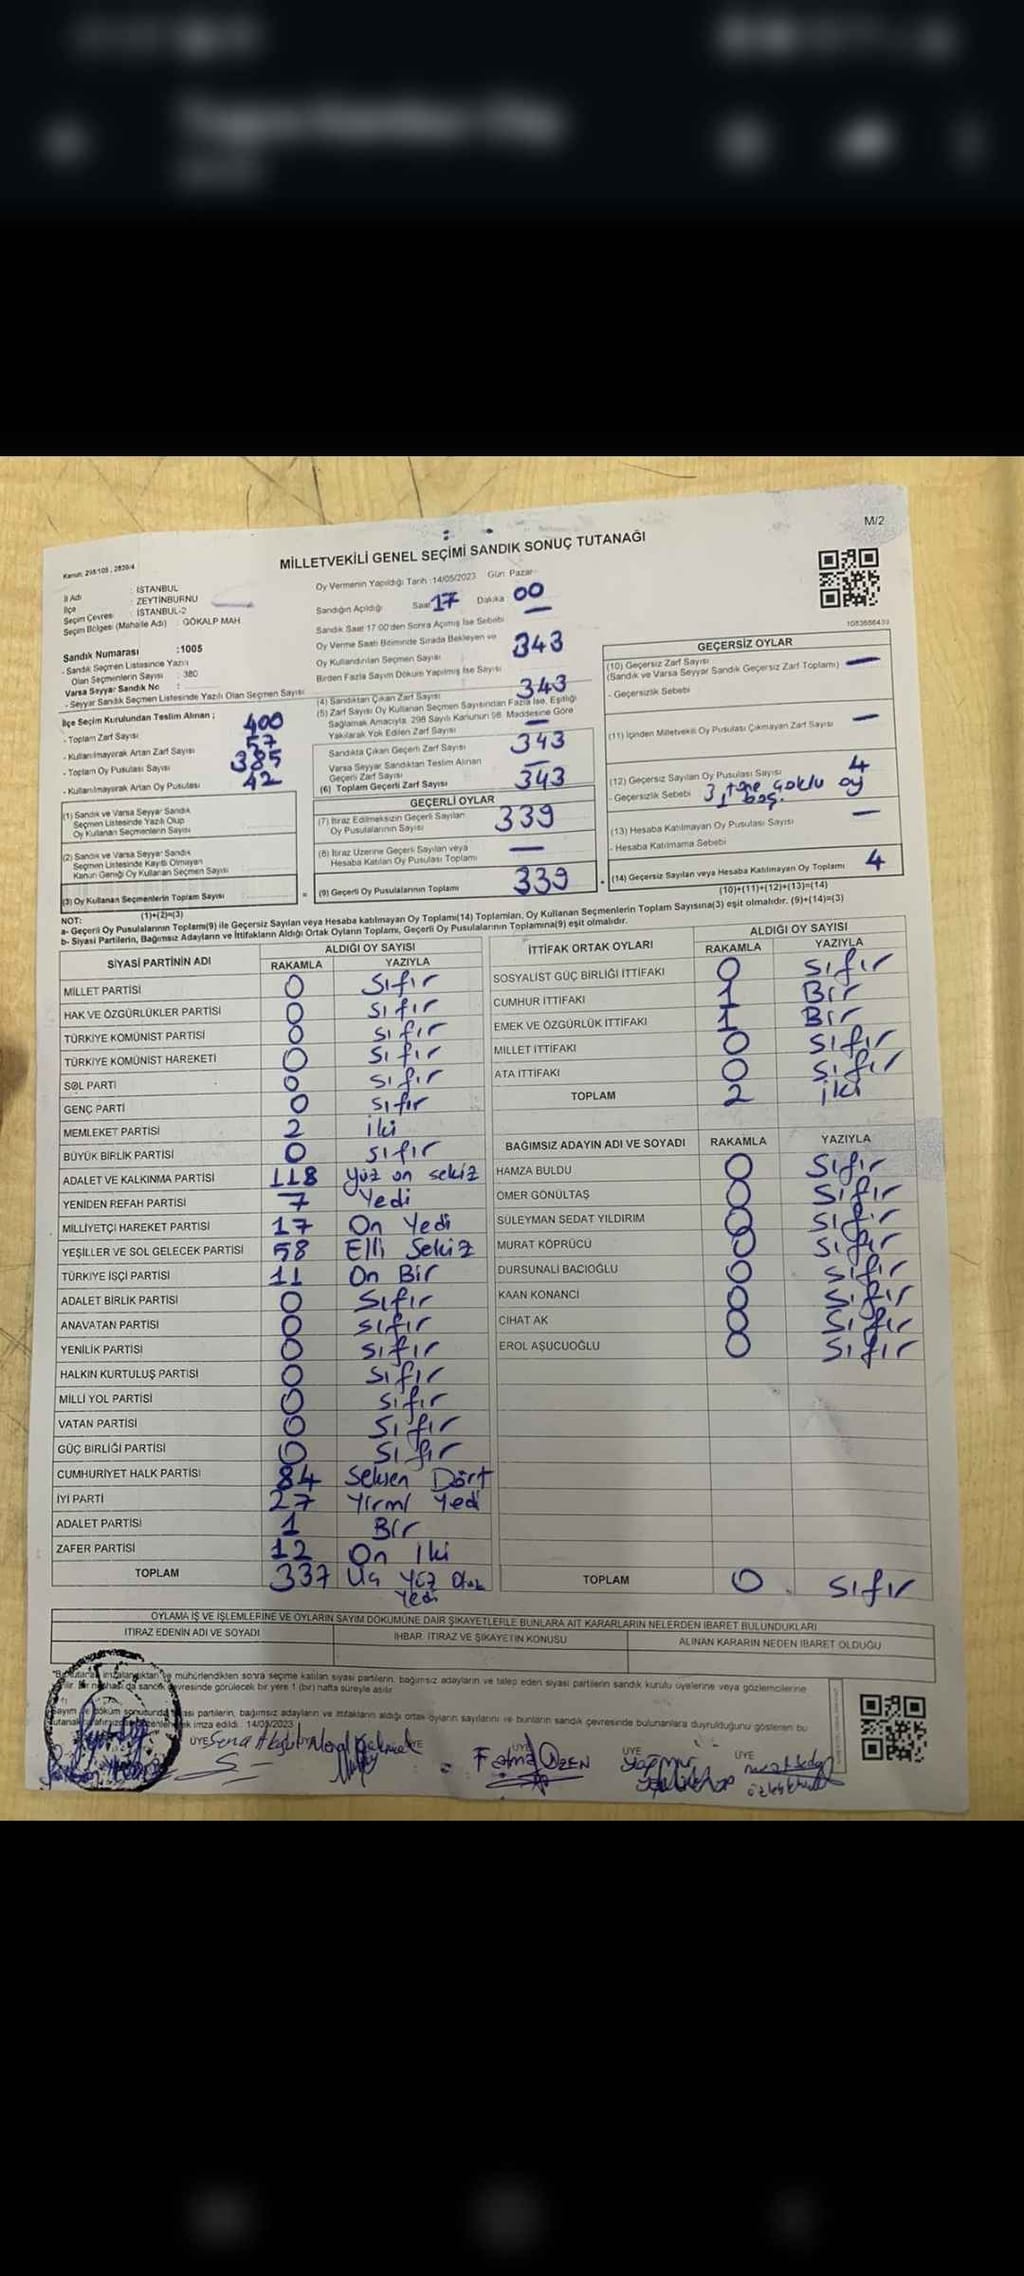 M/2
MİLLETVEKİLİ GENEL SEÇİMİ SANDIK SONUÇ TUTANAĞI
İl Adı : İSTANBUL
İlçe : ZEYTİNBURNU
Seçim Çevresi : İSTANBUL-2
Seçim Bölgesi (Mahalle Adı) : GÖKALP MAH
Sandık Numarası :1005
- Sandık Seçmen Listesinde Yazılı
Olan Seçmenlerin Sayısı : 380
Varsa Seyyar Sandık No :
- Seyyar Sandık Seçmen Listesinde Yazılı Olan Seçmen Sayısı
İlçe Seçim Kurulundan Teslim Alınan ;
- Toplam Zarf Sayısı 400
- Kullanılmayarak Artan Zarf Sayısı 57
- Toplam Oy Pusulası Sayısı 385
- Kullanılmayarak Artan Oy Pusulası 42
(1) Sandık ve Varsa Seyyar Sandık
Seçmen Listesinde Yazılı Olup
Oy Kullanan Seçmenlerin Sayısı
(2) Sandık ve Varsa Seyyar Sandık
Seçmen Listesinde Kayıtlı Olmayan
Kanun Gereği Oy Kullanan Seçmen Sayısı
(3) Oy Kullanan Seçmenlerin Toplam Sayısı
(1)+(2)=(3)
Oy Vermenin Yapıldığı Tarih :14/05/2023 Gün: Pazar
Sandığın Açıldığı Saat 17 Dakika 00
Sandık Saat 17.00'den Sonra Açılmış İse Sebebi
Oy Verme Saati Bitiminde Sırada Bekleyen ve
Oy Kullandırılan Seçmen Sayısı 343
Birden Fazla Sayım Döküm Yapılmış İse Sayısı
(4) Sandıktan Çıkan Zarf Sayısı 343
(5) Zarf Sayısı Oy Kullanan Seçmen Sayısından Fazla İse, Eşitliği
Sağlamak Amacıyla, 298 Sayılı Kanunun 98. Maddesine Göre
Yakılarak Yok Edilen Zarf Sayısı —
Sandıkta Çıkan Geçerli Zarf Sayısı 343
Varsa Seyyar Sandıktan Teslim Alınan
Geçerli Zarf Sayısı —
(6) Toplam Geçerli Zarf Sayısı 343
GEÇERLİ OYLAR
(7) İtiraz Edilmeksizin Geçerli Sayılan
Oy Pusulalarının Sayısı 339
(8) İtiraz Üzerine Geçerli Sayılan veya
Hesaba Katılan Oy Pusulası Toplamı —
(9) Geçerli Oy Pusulalarının Toplamı 339
GEÇERSİZ OYLAR
(10) Geçersiz Zarf Sayısı
(Sandık ve Varsa Seyyar Sandık Geçersiz Zarf Toplamı) —
- Geçersizlik Sebebi
(11) İçinden Milletvekili Oy Pusulası Çıkmayan Zarf Sayısı —
(12) Geçersiz Sayılan Oy Pusulası Sayısı 4
- Geçersizlik Sebebi 3 tane çoklu oy
1 boş.
(13) Hesaba Katılmayan Oy Pusulası Sayısı —
- Hesaba Katılmama Sebebi
(14) Geçersiz Sayılan veya Hesaba Katılmayan Oy Toplamı 4
(10)+(11)+(12)+(13)=(14)
NOT:
a- Geçerli Oy Pusulalarının Toplamı(9) ile Geçersiz Sayılan veya Hesaba katılmayan Oy Toplamı(14) Toplamları, Oy Kullanan Seçmenlerin Toplam Sayısına(3) eşit olmalıdır. (9)+(14)=(3)
b- Siyasi Partilerin, Bağımsız Adayların ve İttifakların Aldığı Ortak Oyların Toplamı, Geçerli Oy Pusulalarının Toplamına(9) eşit olmalıdır.
SİYASİ PARTİNİN ADI ALDIĞI OY SAYISI
RAKAMLA YAZIYLA
MİLLET PARTİSİ 0 Sıfır
HAK VE ÖZGÜRLÜKLER PARTİSİ 0 Sıfır
TÜRKİYE KOMÜNİST PARTİSİ 0 Sıfır
TÜRKİYE KOMÜNİST HAREKETİ 0 Sıfır
SOL PARTİ 0 Sıfır
GENÇ PARTİ 0 Sıfır
MEMLEKET PARTİSİ 2 iki
BÜYÜK BİRLİK PARTİSİ 0 Sıfır
ADALET VE KALKINMA PARTİSİ 118 Yüz on sekiz
YENİDEN REFAH PARTİSİ 7 Yedi
MİLLİYETÇİ HAREKET PARTİSİ 17 On Yedi
YEŞİLLER VE SOL GELECEK PARTİSİ 58 Elli Sekiz
TÜRKİYE İŞÇİ PARTİSİ 11 On Bir
ADALET BİRLİK PARTİSİ 0 Sıfır
ANAVATAN PARTİSİ 0 Sıfır
YENİLİK PARTİSİ 0 Sıfır
HALKIN KURTULUŞ PARTİSİ 0 Sıfır
MİLLİ YOL PARTİSİ 0 Sıfır
VATAN PARTİSİ 0 Sıfır
GÜÇ BİRLİĞİ PARTİSİ 0 Sıfır
CUMHURİYET HALK PARTİSİ 84 Seksen Dört
İYİ PARTİ 27 Yirmi Yedi
ADALET PARTİSİ 1 Bir
ZAFER PARTİSİ 12 On İki
TOPLAM 337 Üç Yüz Otuz
Yedi
İTTİFAK ORTAK OYLARI ALDIĞI OY SAYISI
RAKAMLA YAZIYLA
SOSYALİST GÜÇ BİRLİĞİ İTTİFAKI 0 Sıfır
CUMHUR İTTİFAKI 1 Bir
EMEK VE ÖZGÜRLÜK İTTİFAKI 1 Bir
MİLLET İTTİFAKI 0 Sıfır
ATA İTTİFAKI 0 Sıfır
TOPLAM 2 iki
BAĞIMSIZ ADAYIN ADI VE SOYADI RAKAMLA YAZIYLA
HAMZA BULDU 0 Sıfır
ÖMER GÖNÜLTAŞ 0 Sıfır
SÜLEYMAN SEDAT YILDIRIM 0 Sıfır
MURAT KÖPRÜCÜ 0 Sıfır
DURSUNALİ BACIOĞLU 0 Sıfır
KAAN KONANCI 0 Sıfır
CİHAT AK 0 Sıfır
EROL AŞUCUOĞLU 0 Sıfır
TOPLAM 0 Sıfır
OYLAMA İŞ VE İŞLEMLERİNE VE OYLARIN SAYIM DÖKÜMÜNE DAİR ŞİKAYETLERLE BUNLARA AİT KARARLARIN NELERDEN İBARET BULUNDUKLARI
İTİRAZ EDENİN ADI VE SOYADI İHBAR, İTİRAZ VE ŞİKAYETİN KONUSU ALINAN KARARIN NEDEN İBARET OLDUĞU
mühürlendikten sonra seçime katılan siyasi partilerin, bağımsız adayların ve talep eden siyasi partilerin sandık kurulu üyelerine veya gözlemcilerine
sandık çevresinde görülecek bir yere 1 (bir) hafta süreyle asılır.
partilerin, bağımsız adayların ve ittifakların aldığı ortak oyların sayılarını ve bunların sandık çevresinde bulunanlara duyrulduğunu gösteren bu
imza edildi. 14/05/2023
ÜYE ÜYE ÜYE ÜYE ÜYE
Fatma ÖZEN